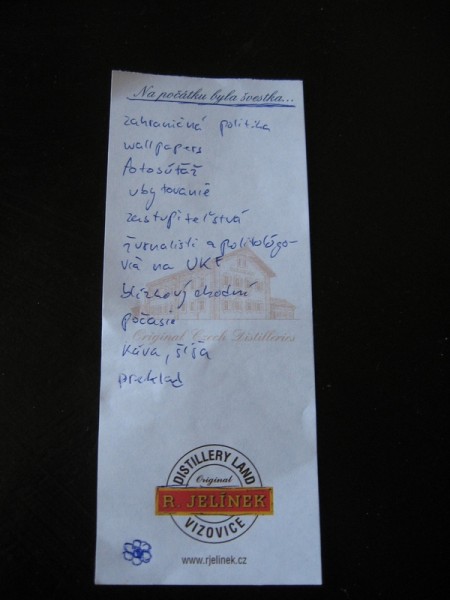 Na počátku byla švestka...
zahraničná politika
wallpapers
fotosúťaž
ubytovanie
zastupiteľstvá
žurnalisti a politológo-
via na UKF
blízkovýchodní
počasie
káva, šíša
preklad
Original Czech Distilleries
DISTILLERY LAND
Original
R. JELÍNEK
VIZOVICE
www.rjelinek.cz